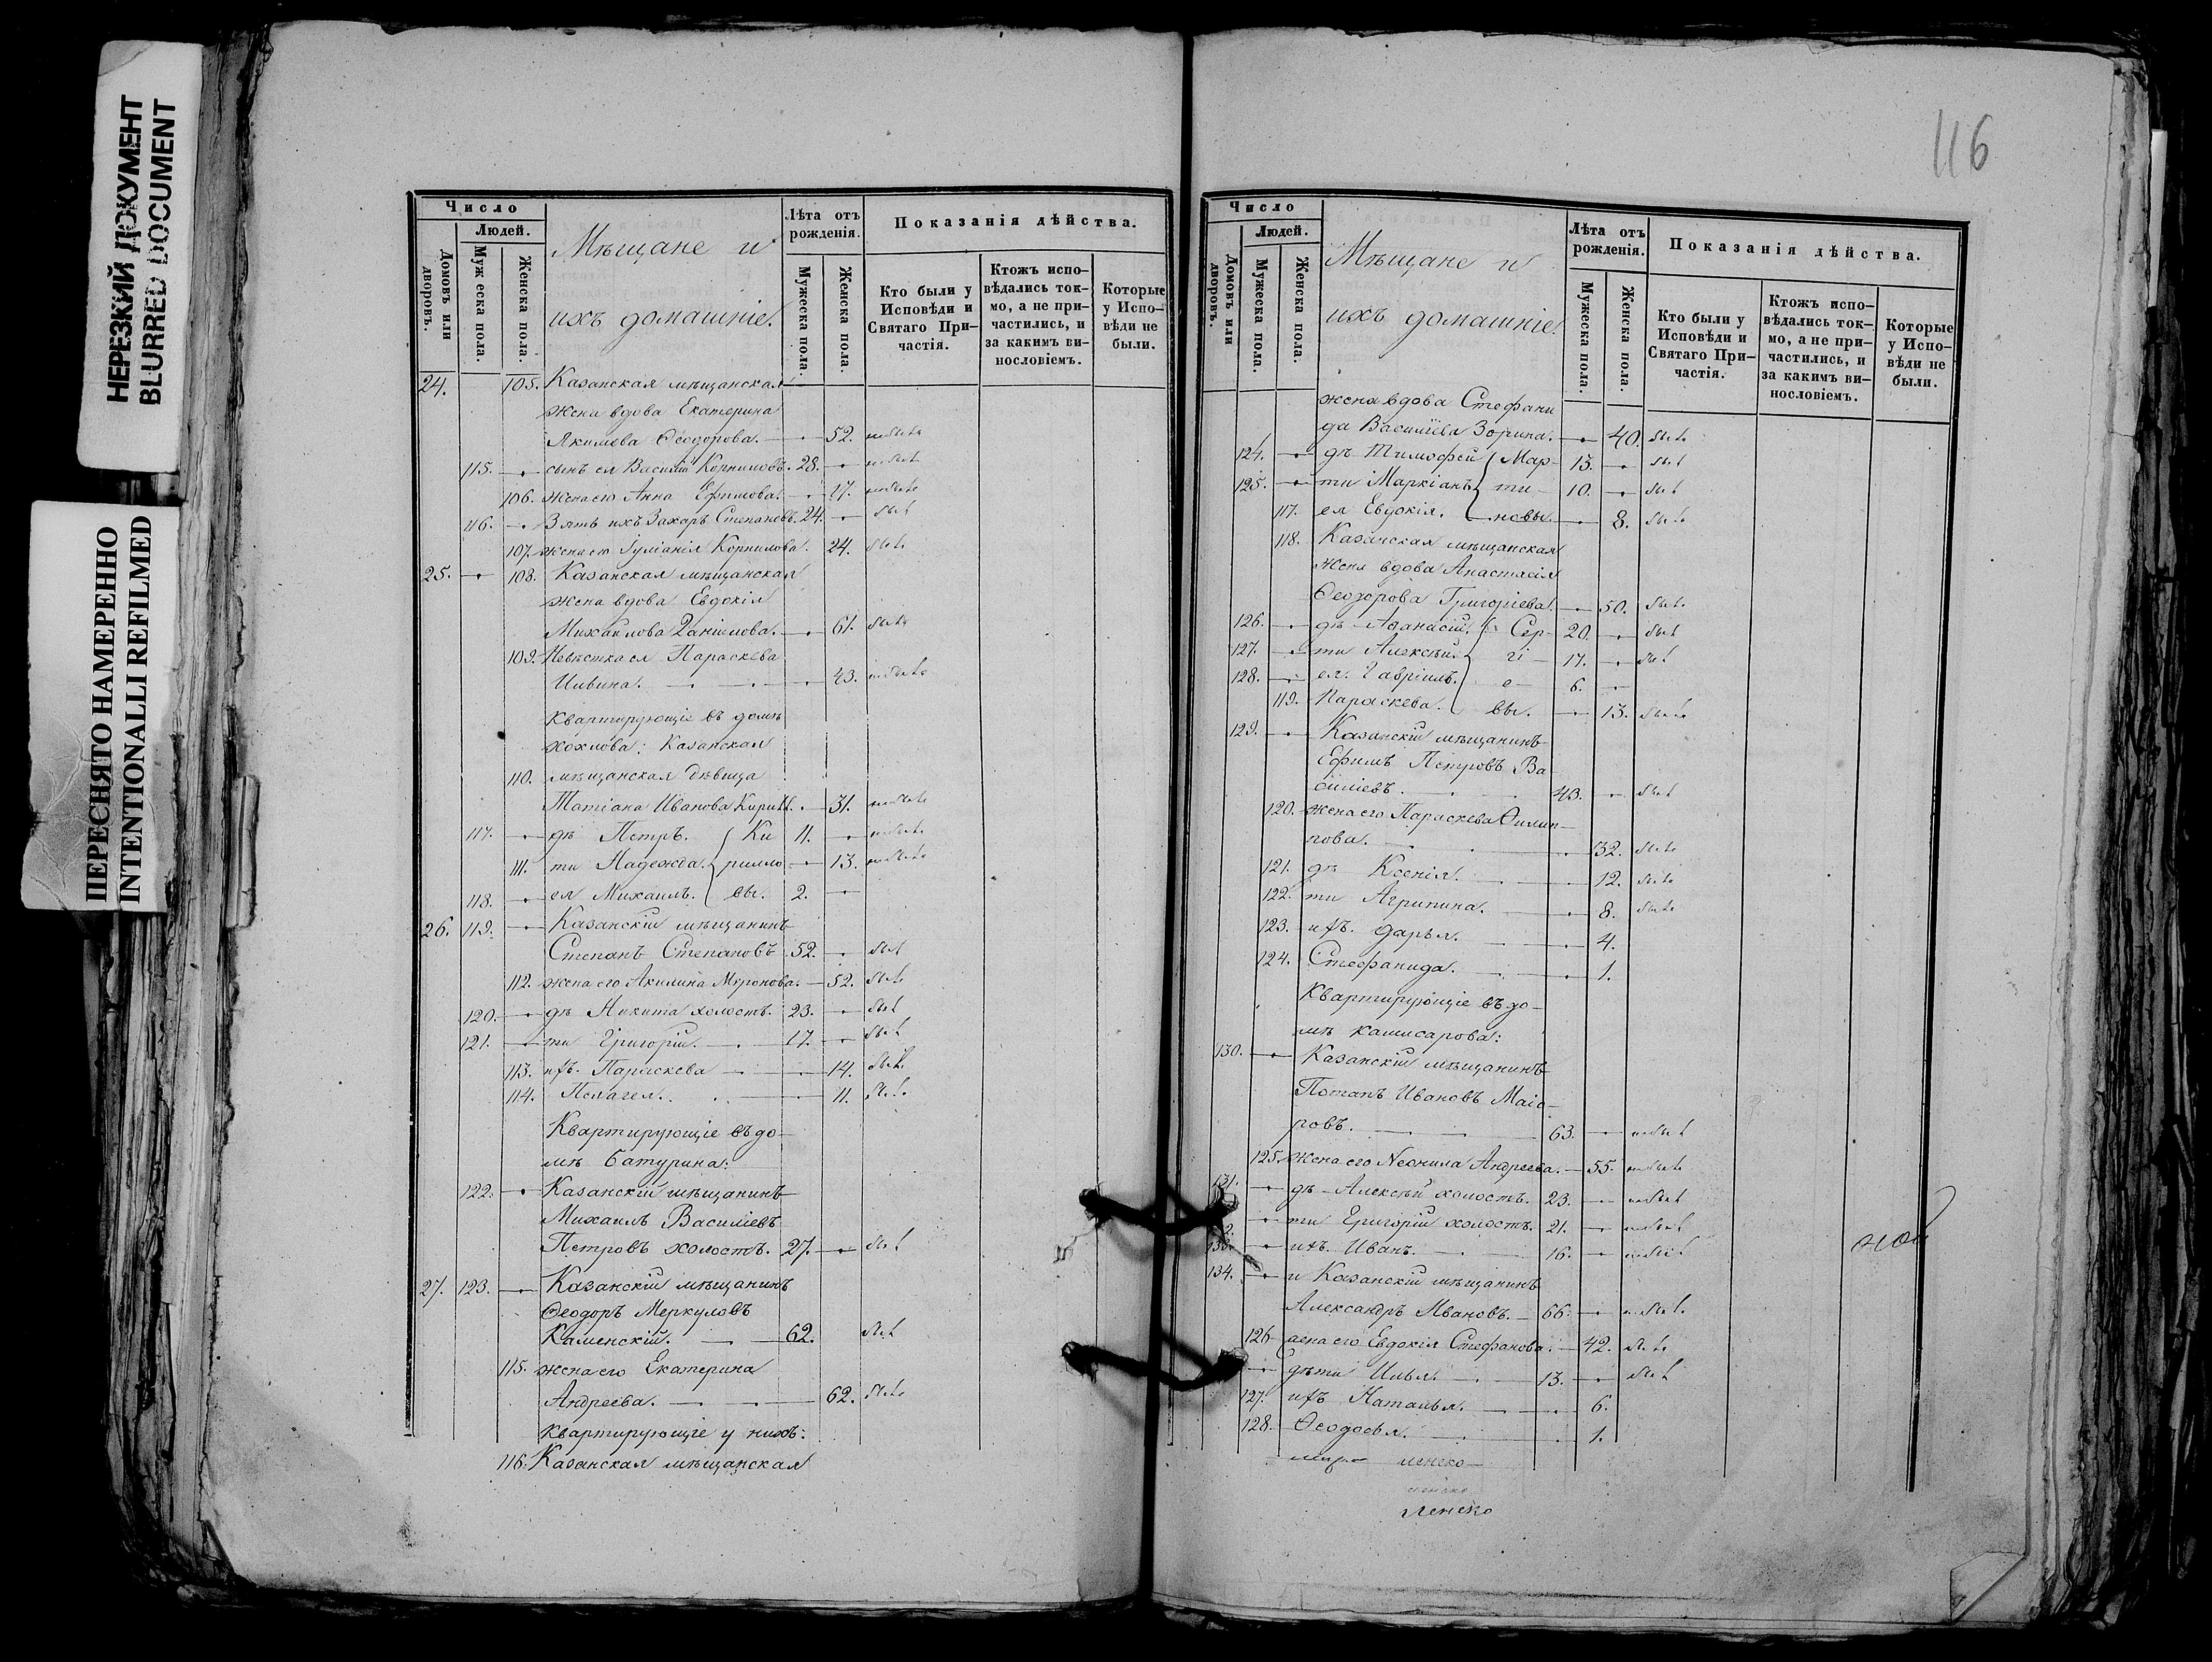 НЕРЕЗКИЙ ДОКУМЕНТ
BLURRED DOCUMENT
ПЕРЕСНЯТО НАМЕРЕННО
INTENTIONALLI REFILMED
Число
Людей.
Домовъ или дворовъ.
Мужеска пола.
Женска пола.
Мѣщане и
ихъ домашніе.
Лѣта отъ рожденія.
Мужеска пола.
Женска пола.
Показанія дѣйства.
Кто были у Исповѣди и Святаго Причастія.
Ктожъ исповѣдались токмо, а не причастились, и за какимъ винословіемъ.
Которые у Исповѣди не были.
24. 105. Казанская мѣщанская
жена вдова Екатерина
Якимова Ѳеодорова. 52.
115. сынъ ея Василій Корниловъ. 28.
106. жена его Анна Ефимова. 17.
116. Зять ихъ Захаръ Степановъ. 24. был
107. жена его Іуліанія Корнилова. 24. была
25. 108. Казанская мѣщанская
жена вдова Евдокія
Михайлова Даніилова. 61. была
109. Невѣстка ея Параскева
Ильина. 43.
Квартирующіе въ домѣ
Хохлова: Казанская
110. мѣщанская дѣвица
Татіана Иванова Кирил. 31.
117. дѣ Петръ. Ки 11.
111. ти Надежда. рилло 13.
118. ея Михаилъ. вы. 2.
26. 119. Казанскій мѣщанинъ
Степанъ Степановъ 52. был
112. жена его Акилина Миронова. 52. была
120. дѣ Никита холостъ. 23. был
121. ти Григорій. 17. был
113. ихъ. Параскева 14. была
114. Пелагея. 11. была
Квартирующіе въ до-
мѣ Батурина:
122. Казанскій мѣщанинъ
Михаилъ Василіевъ
Петровъ холостъ. 27. был
27. 123. Казанскій мѣщанинъ
Ѳеодоръ Меркуловъ
Каменскій. 62. был
115. жена его Екатерина
Андреева. 62. была
Квартирующіе у нихъ:
116. Казанская мѣщанская
116
Число
Людей.
Домовъ или дворовъ.
Мужеска пола.
Женска пола.
Мѣщане и
ихъ домашніе.
Лѣта отъ рожденія.
Мужеска пола.
Женска пола.
Показанія дѣйства.
Кто были у Исповѣди и Святаго Причастія.
Ктожъ исповѣдались токмо, а не причастились, и за какимъ винословіемъ.
Которые у Исповѣди не были.
жена вдова Стефани
да Василіева Зорина. 40. была
124. дѣ Тимофей Мар- 13. был
125. ти Маркіанъ ти- 10. был
117. ея Евдокія. новы. 8. была
118. Казанская мѣщанская
жена вдова Анастасія
Ѳеодорова Григоріева. 50. была
126. дѣ Аѳанасій. Сер- 20. был
127. ти Алексѣй. гі- 17. был
128. ея. Гавріилъ. е- 6.
119. Параскева. вы. 13. была
129. Казанскій мѣщанинъ
Ефимъ Петровъ Ва-
силіевъ. 43. был
120. жена его Параскева Филип-
пова. 32. была
121. дѣ Ксенія. 12. была
122. ти Агрипина. 8. была
123. ихъ. Дарья. 4.
124. Стефанида. 1.
Квартирующіе въ до-
мѣ Камисарова:
130. Казанскій мѣщанинъ
Потапъ Ивановъ Маіо-
ровъ. 63.
125. жена его Неонила Андреева. 55.
131. дѣ Алексѣй холостъ. 23.
2. ти Григорій холостъ. 21.
133. ихъ. Иванъ. 16.
134. и Казанскій мѣщанинъ
Александръ Ивановъ. 66.
126 жена его Евдокія Стефанова. 42. была
дѣти Илья. 13. был
127. ихъ Наталья. 6.
128. Ѳеодосья. 1.
ленско